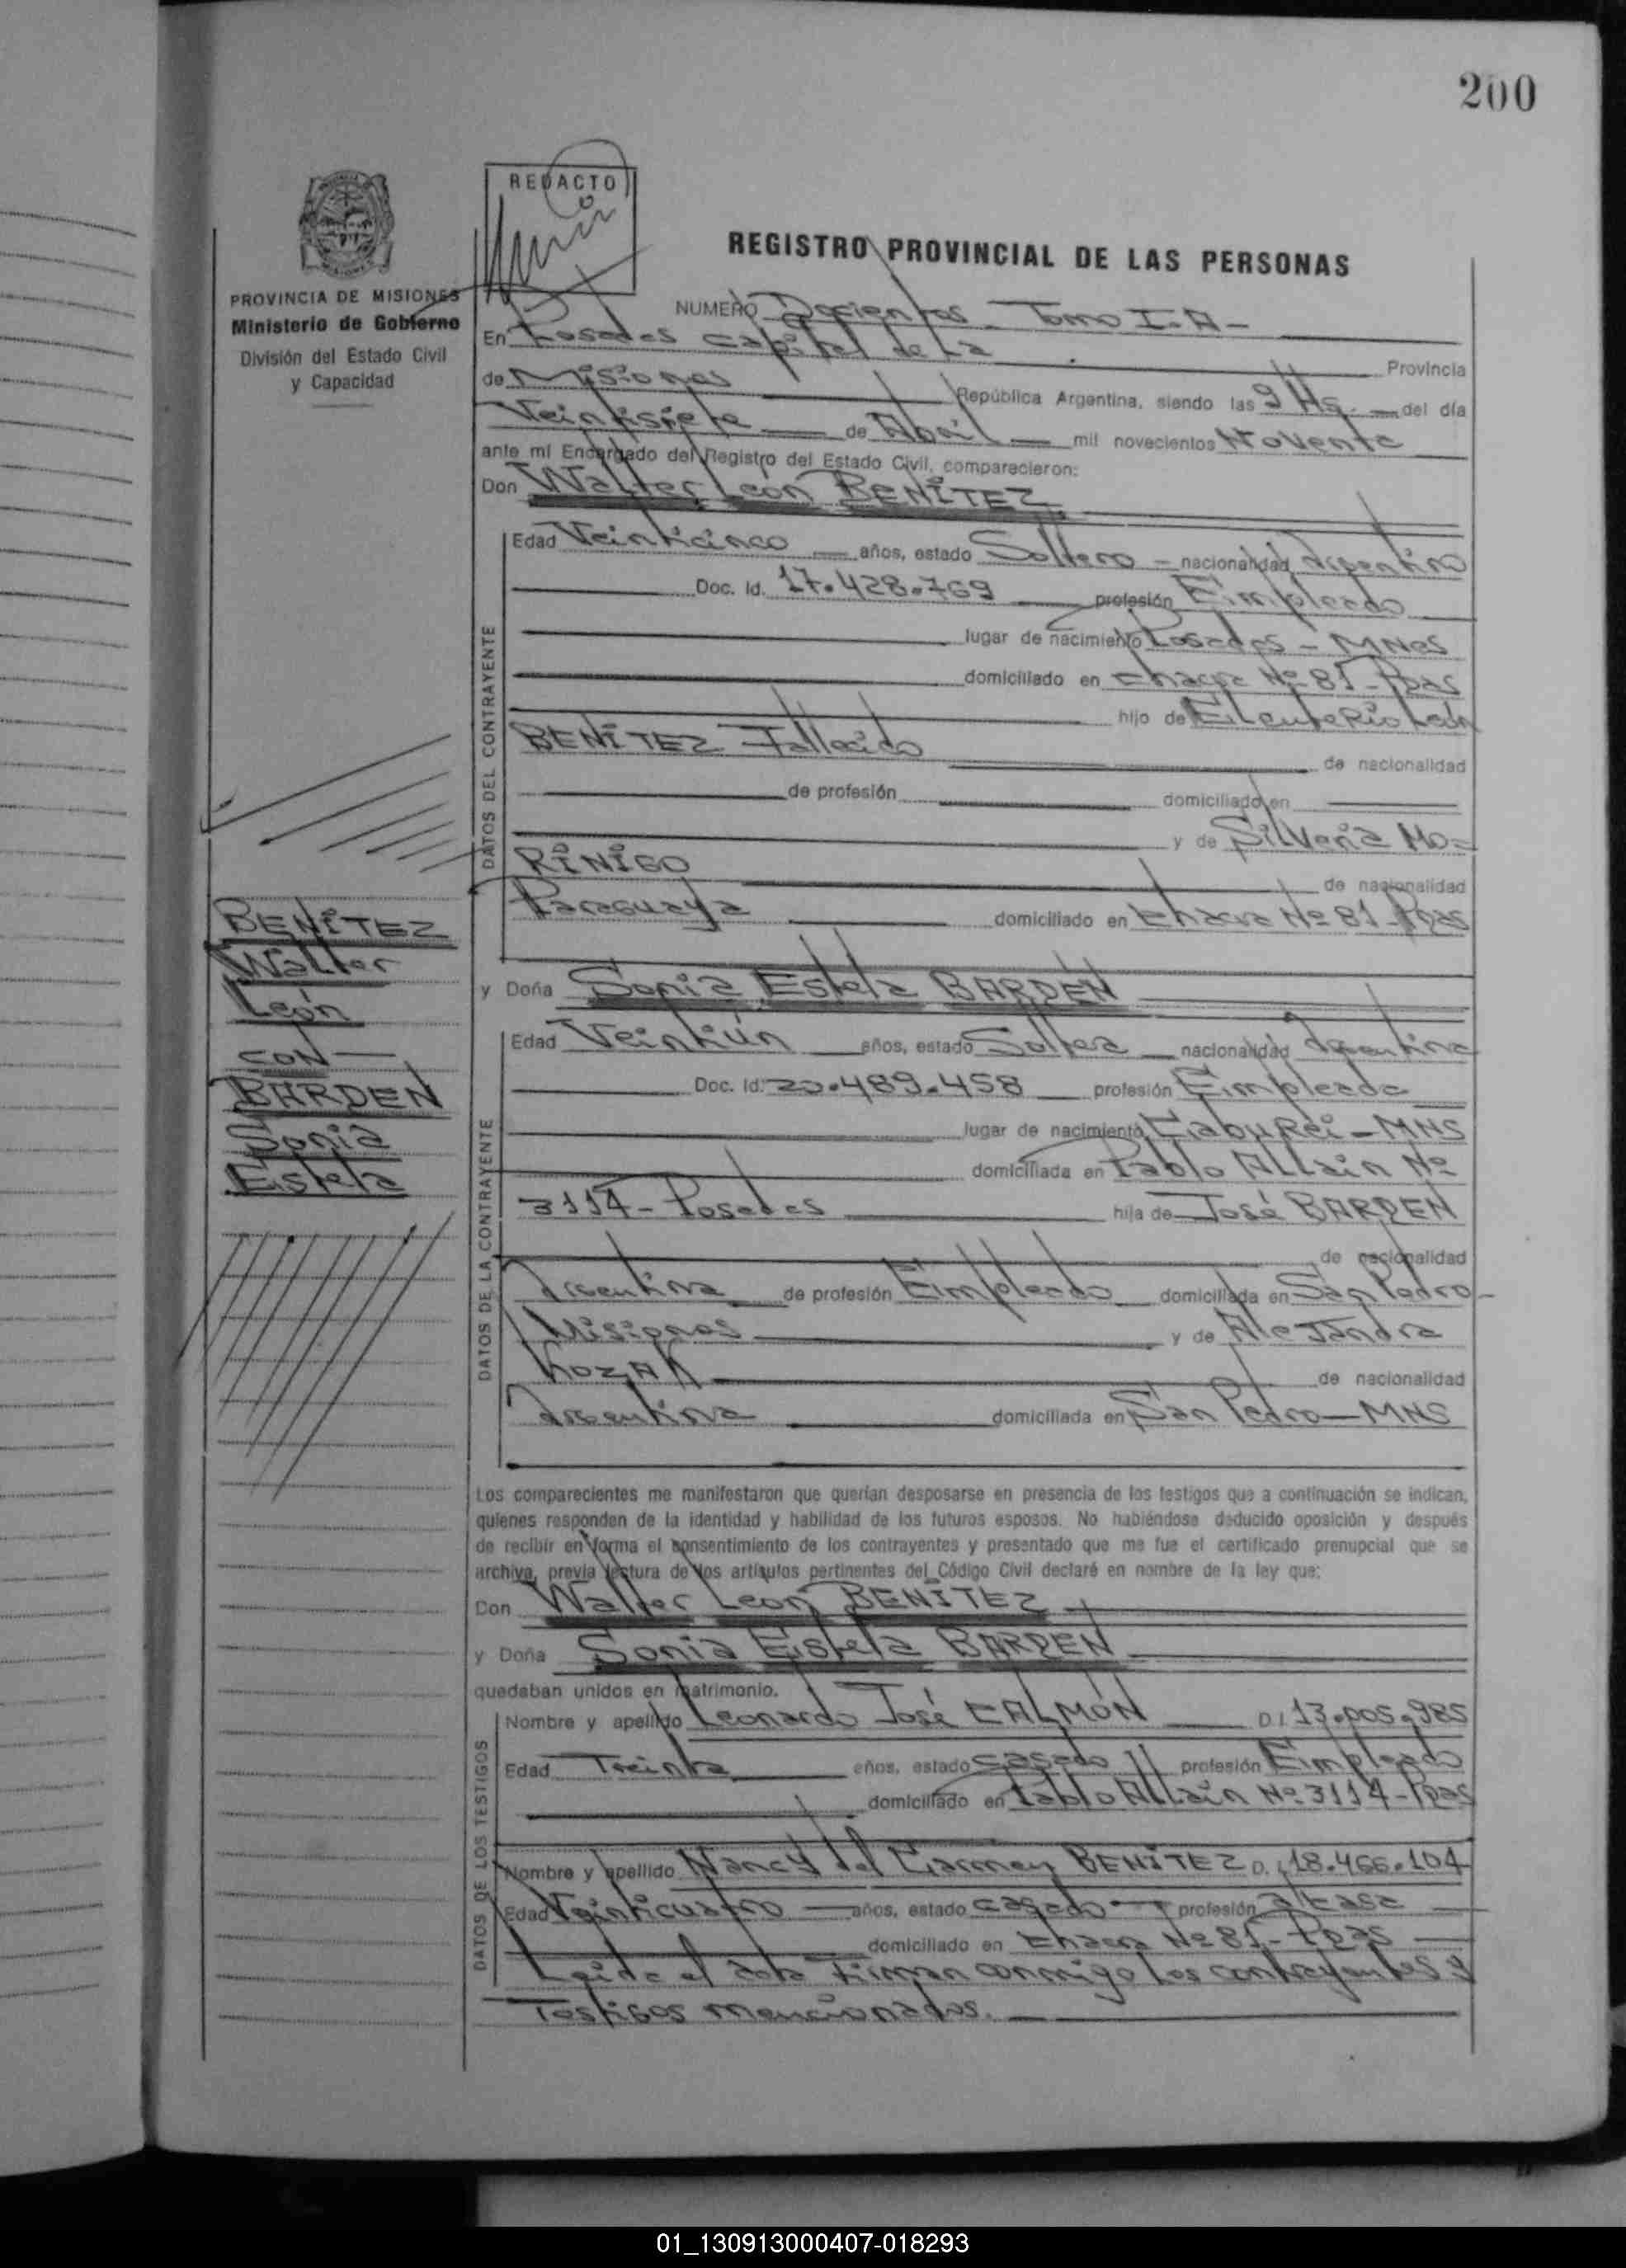 200
REDACTO
REGISTRO PROVINCIAL DE LAS PERSONAS
PROVINCIA DE MISIONES
Ministerio de Gobierno
División del Estado Civil
y Capacidad
NUMERO Docientos - Tomo I-A-
En Posadas Capital de La Provincia
de Misiones República Argentina, siendo las 9 Hs. del día
Veintisiete de Abril mil novecientos Noventa
ante mi Encargado del Registro del Estado Civil, comparecieron:
Don Walter León BENÍTEZ
DATOS DEL CONTRAYENTE
Edad Veinticinco años, estado Soltero - nacionalidad Argentino
Doc. Id. 17.428.769 profesión Empleado
lugar de nacimiento Posadas - MNes
domiciliado en Chacra Nº 81 - Pdas
hijo de Eleuterio León
BENÍTEZ Fallecido de nacionalidad
de profesión domiciliado en
y de Silveria Mo=
RÍNIGO de nacionalidad
Paraguaya domiciliado en Chacra Nº 81 - Pdas
BENÍTEZ
Walter
León
CON
BARDEN
Sonia
Estela
y Doña Sonia Estela BARDEN
DATOS DE LA CONTRAYENTE
Edad Veintiún años, estado Soltera nacionalidad Argentina
Doc. Id. 20.489.458 profesión Empleada
lugar de nacimiento Caburei - MNS
domiciliada en Pablo Allain Nº
3114 - Posadas hija de José BARDEN
de nacionalidad
Argentina de profesión Empleado domiciliada en San Pedro -
Misiones y de Alejandra
KOZAK de nacionalidad
Argentina domiciliada en San Pedro - MNS
Los comparecientes me manifestaron que querían desposarse en presencia de los testigos que a continuación se indican,
quienes responden de la identidad y habilidad de los futuros esposos. No habiéndose deducido oposición y después
de recibir en forma el consentimiento de los contrayentes y presentado que me fue el certificado prenupcial que se
archiva, previa lectura de los artículos pertinentes del Código Civil declaré en nombre de la ley que:
Don Walter León BENÍTEZ
y Doña Sonia Estela BARDEN
quedaban unidos en matrimonio.
DATOS DE LOS TESTIGOS
Nombre y apellido Leonardo José CALMÓN D.I 13.005.985
Edad Treinta años, estado Casado profesión Empleado
domiciliado en Pablo Allain Nº 3114 - Pdas
Nombre y apellido Nancy del Carmen BENÍTEZ D. I 18.466.104
Edad Veinticuatro años, estado casado profesión a/ casa
domiciliado en Chacra Nº 81 - Pdas
Leída el acta Firman conmigo Los contrayentes y
Testigos mencionados.
01_130913000407-018293